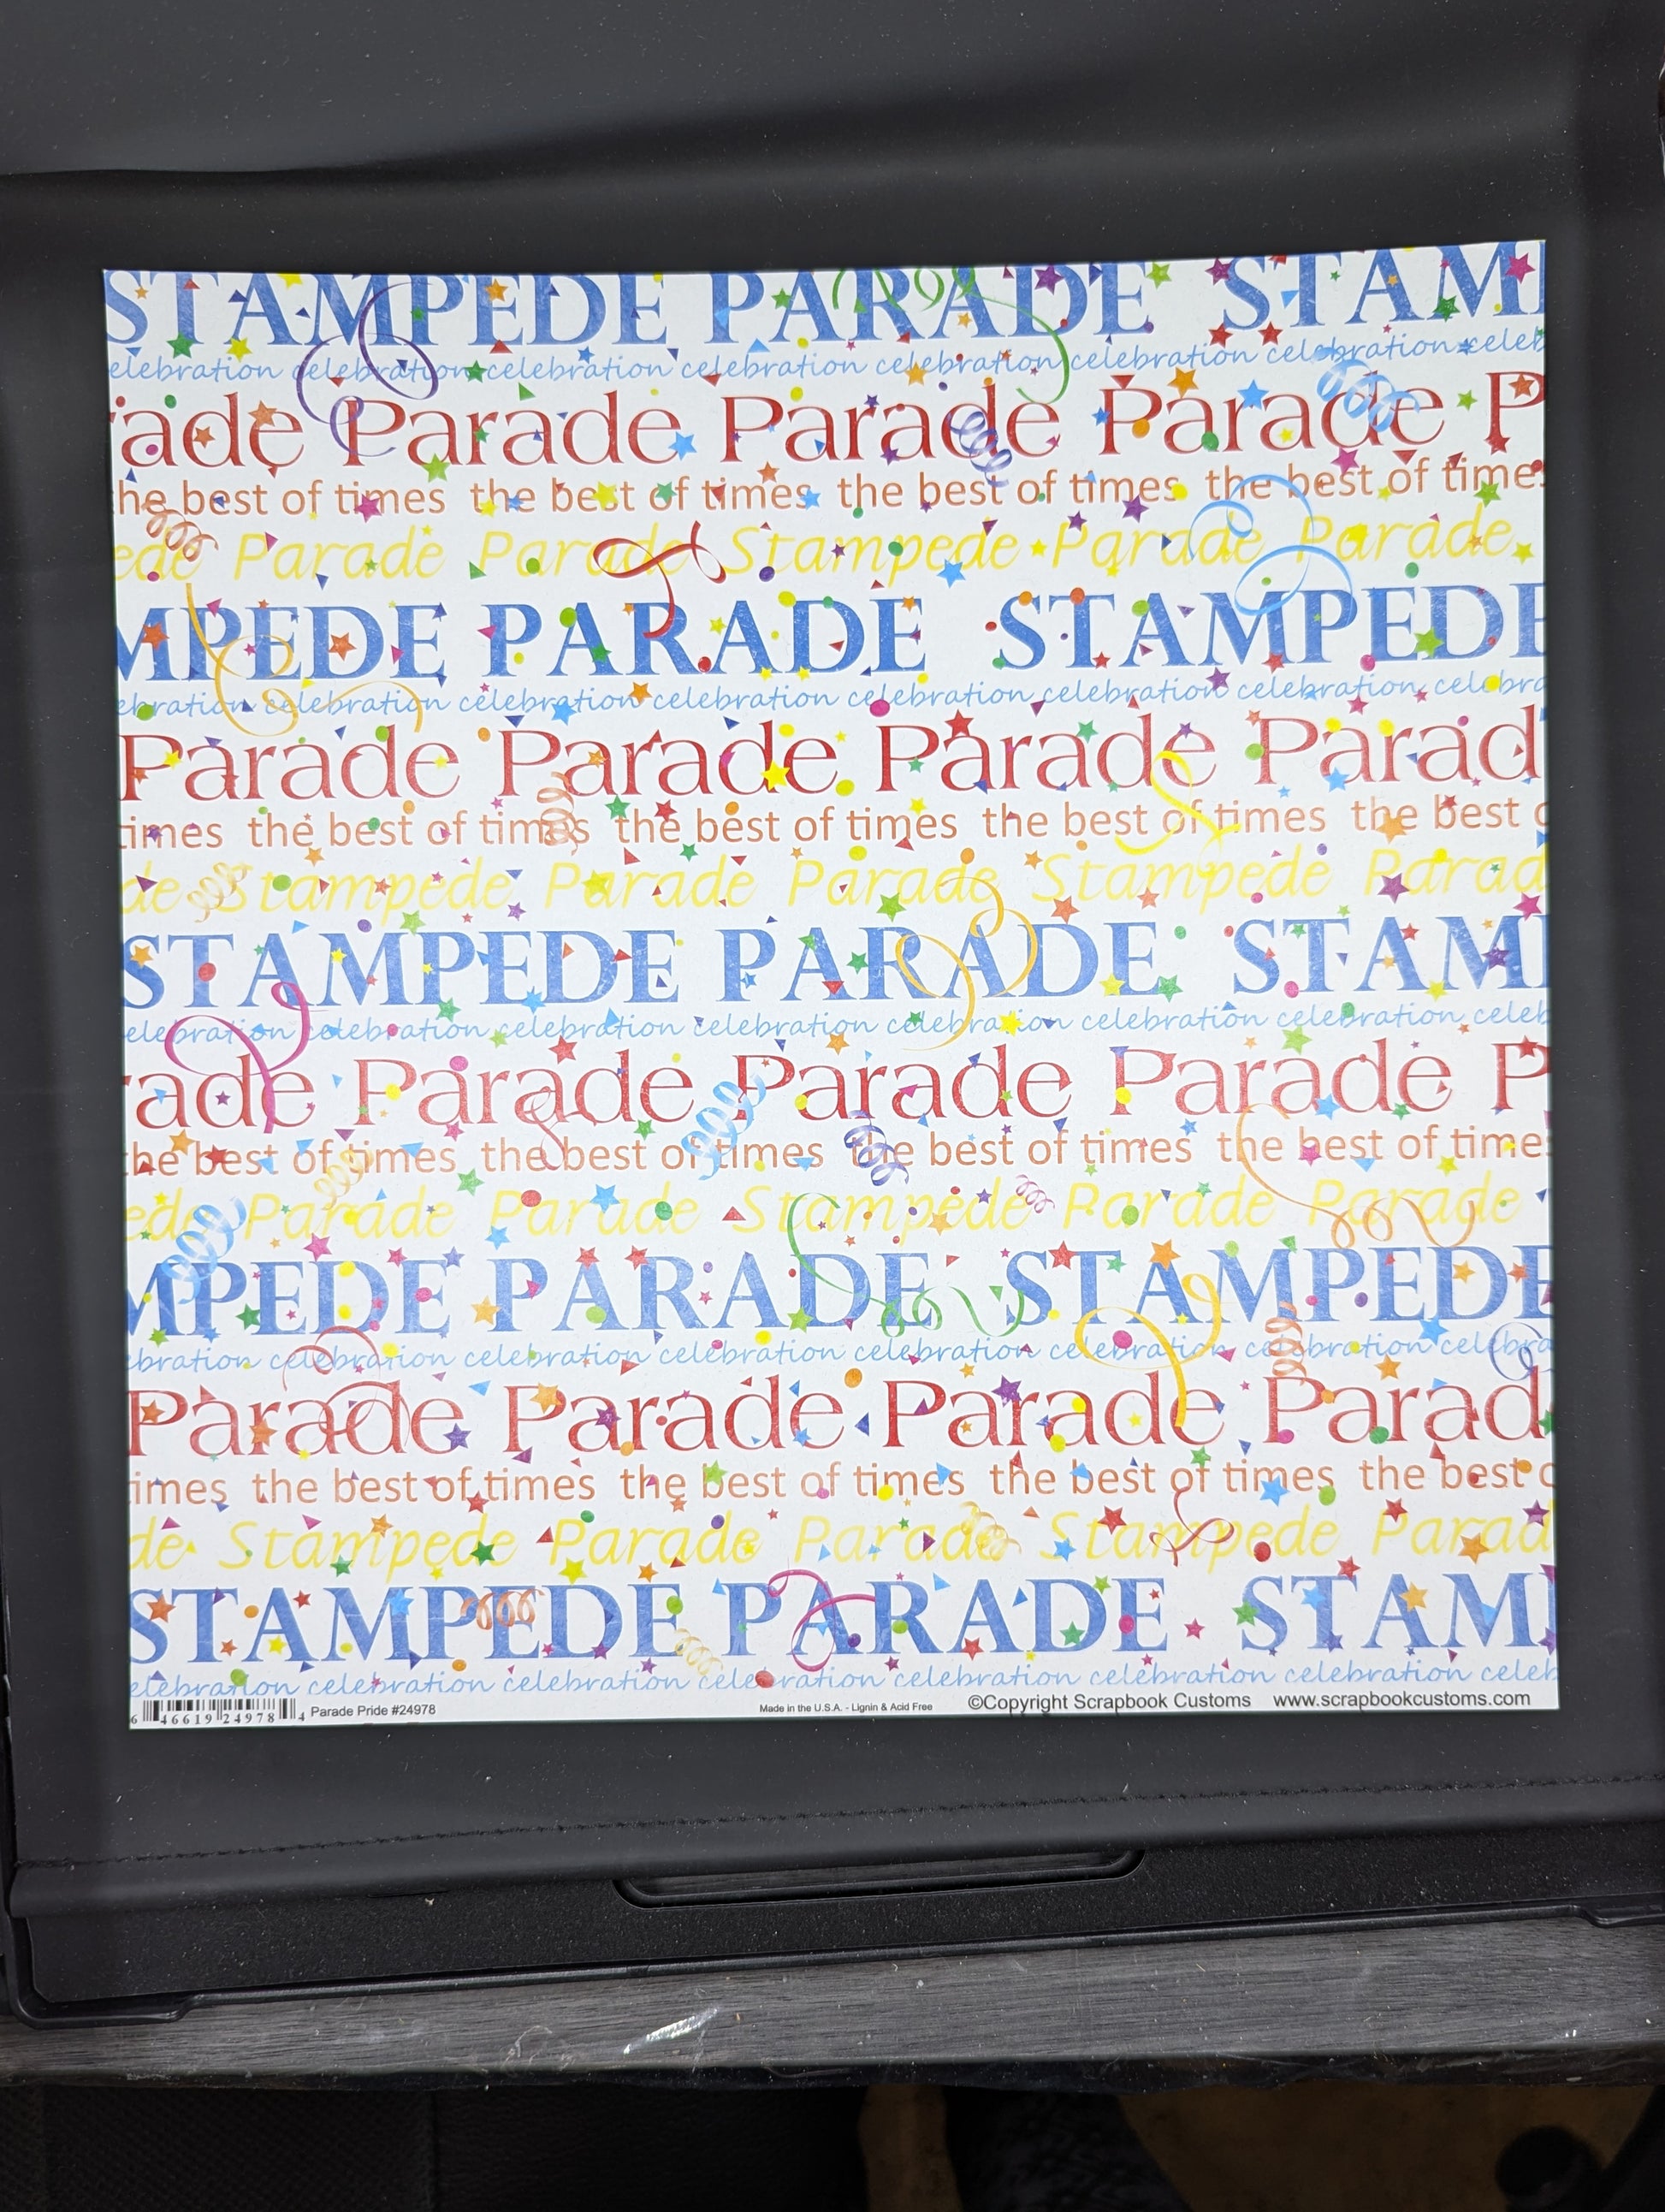 STAMPEDE PARADE STAM
elebration celebration celebration celebration celebration celebration celebration celeb
ade Parade Parade Parade P
he best of times the best of times the best of times the best of time
ede Parade Parade Stampede Parade Parade
MPEDE PARADE STAMPEDE
ebration celebration celebration celebration celebration celebration celebration celebra
Parade Parade Parade Parad
times the best of times the best of times the best of times the best o
de Stampede Parade Parade Stampede Parad
STAMPEDE PARADE STAM
elebration celebration celebration celebration celebration celebration celebration celeb
rade Parade Parade Parade P
the best of times the best of times the best of times the best of time
ede Parade Parade Stampede Parade Parade
MPEDE PARADE STAMPEDE
ebration celebration celebration celebration celebration celebration celebration celebra
Parade Parade Parade Parad
imes the best of times the best of times the best of times the best o
de Stampede Parade Parade Stampede Parad
STAMPEDE PARADE STAM
elebration celebration celebration celebration celebration celebration celebration celeb
6 46619 24978 4 Parade Pride #24978 Made in the U.S.A. - Lignin & Acid Free ©Copyright Scrapbook Customs www.scrapbookcustoms.com